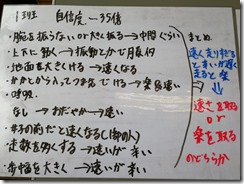 1班 自信度…35倍
・腕を振らないor大きく振る→中間くらい
・上下に動く→振動とかで月夜何
・地面を大きくける→速くなる
・かかとから入ってつま先でける→楽&速い
・呼吸、
なし→おだやか→速い
・女子の前だと速くなる(御の人)
・走数を多くする→速いが辛い
・歩幅を大きく→速いが辛い
まとめ
速く走りすぎる
と辛いが遅く
走ると楽
⇓
速さを取る
or
楽を取る
のどちらか